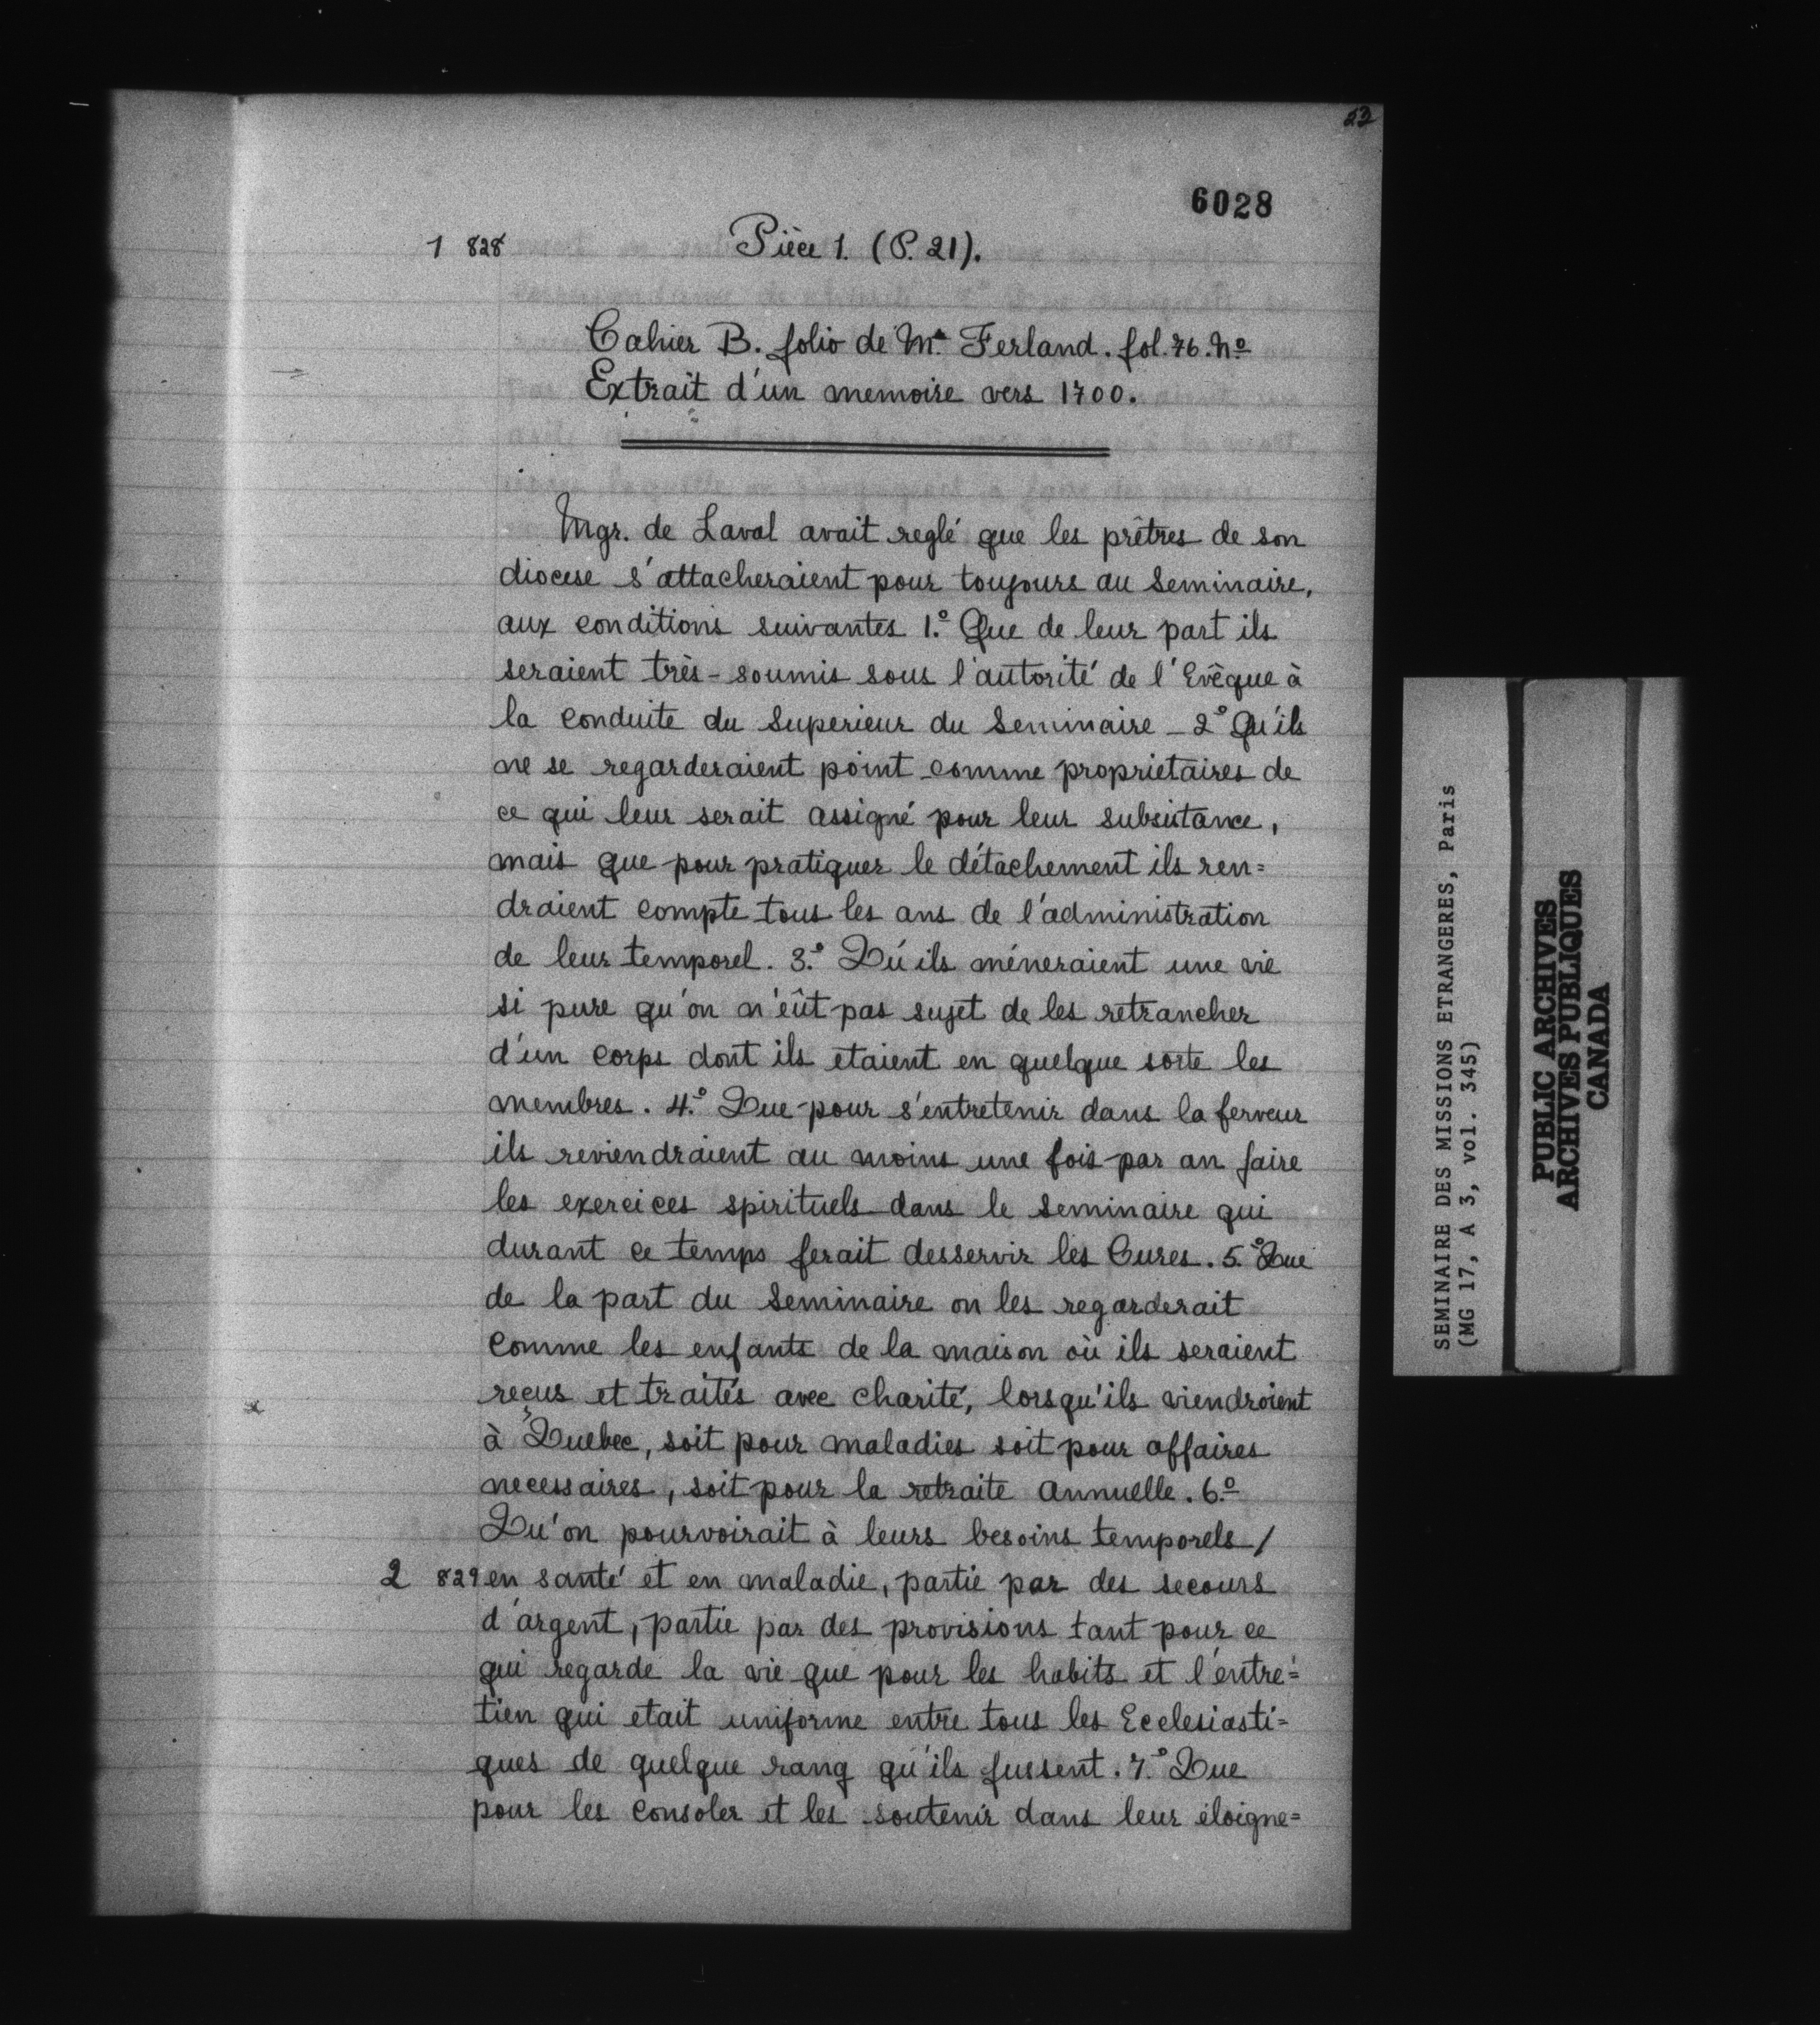 53
6028
1 828 Pièce 1. (P. 21).
Cahier B. folio de Mr. Ferland. fol. 76. No
Extrait d'un memoire vers 1700.
Mgr. de Laval avait reglé que les prêtres de son
diocese s'attacheraient pour toujours au Seminaire,
aux conditions suivantes 1.° Que de leur part ils
seraient très-soumis sous l'autorité de l'Evêque à
la conduite du Superieur du Seminaire - 2° Qu'ils
ne se regarderaient point comme proprietaires de
ce qui leur serait assigné pour leur subsistance,
mais que pour pratiquer le détachement ils ren=
draient compte tous les ans de l'administration
de leur temporel. 3.° Qu'ils méneraient une vie
si pure qu'on n'eût pas sujet de les retrancher
d'un corps dont ils etaient en quelque sorte les
membres. 4.° Que pour s'entretenir dans la ferveur
ils reviendraient au moins une fois par an faire
les exercices spirituels dans le Seminaire qui
durant ce temps ferait desservir les Cures. 5.° Que
de la part du Seminaire on les regarderait
comme les enfants de la maison où ils seraient
reçus et traités avec charité, lorsqu'ils viendroient
à Quebec, soit pour maladies soit pour affaires
necessaires, soit pour la retraite annuelle. 6.°
Qu'on pourvoirait à leurs besoins temporels /
2 829 en santé et en maladie, partie par des secours
d'argent, partie par des provisions tant pour ce
qui regarde la vie que pour les habits et l'entre=
tien qui etait uniforme entre tous les Ecclesiasti=
ques de quelque rang qu'ils fussent. 7.° Que
pour les consoler et les soutenir dans leur éloigne=
SEMINAIRE DES MISSIONS ETRANGERES, Paris
(MG 17, A 3, vol. 345)
PUBLIC ARCHIVES
ARCHIVES PUBLIQUES
CANADA